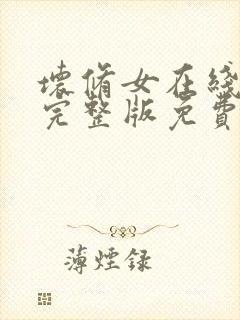 壞脩女在綫
完整版免費
薄煙録